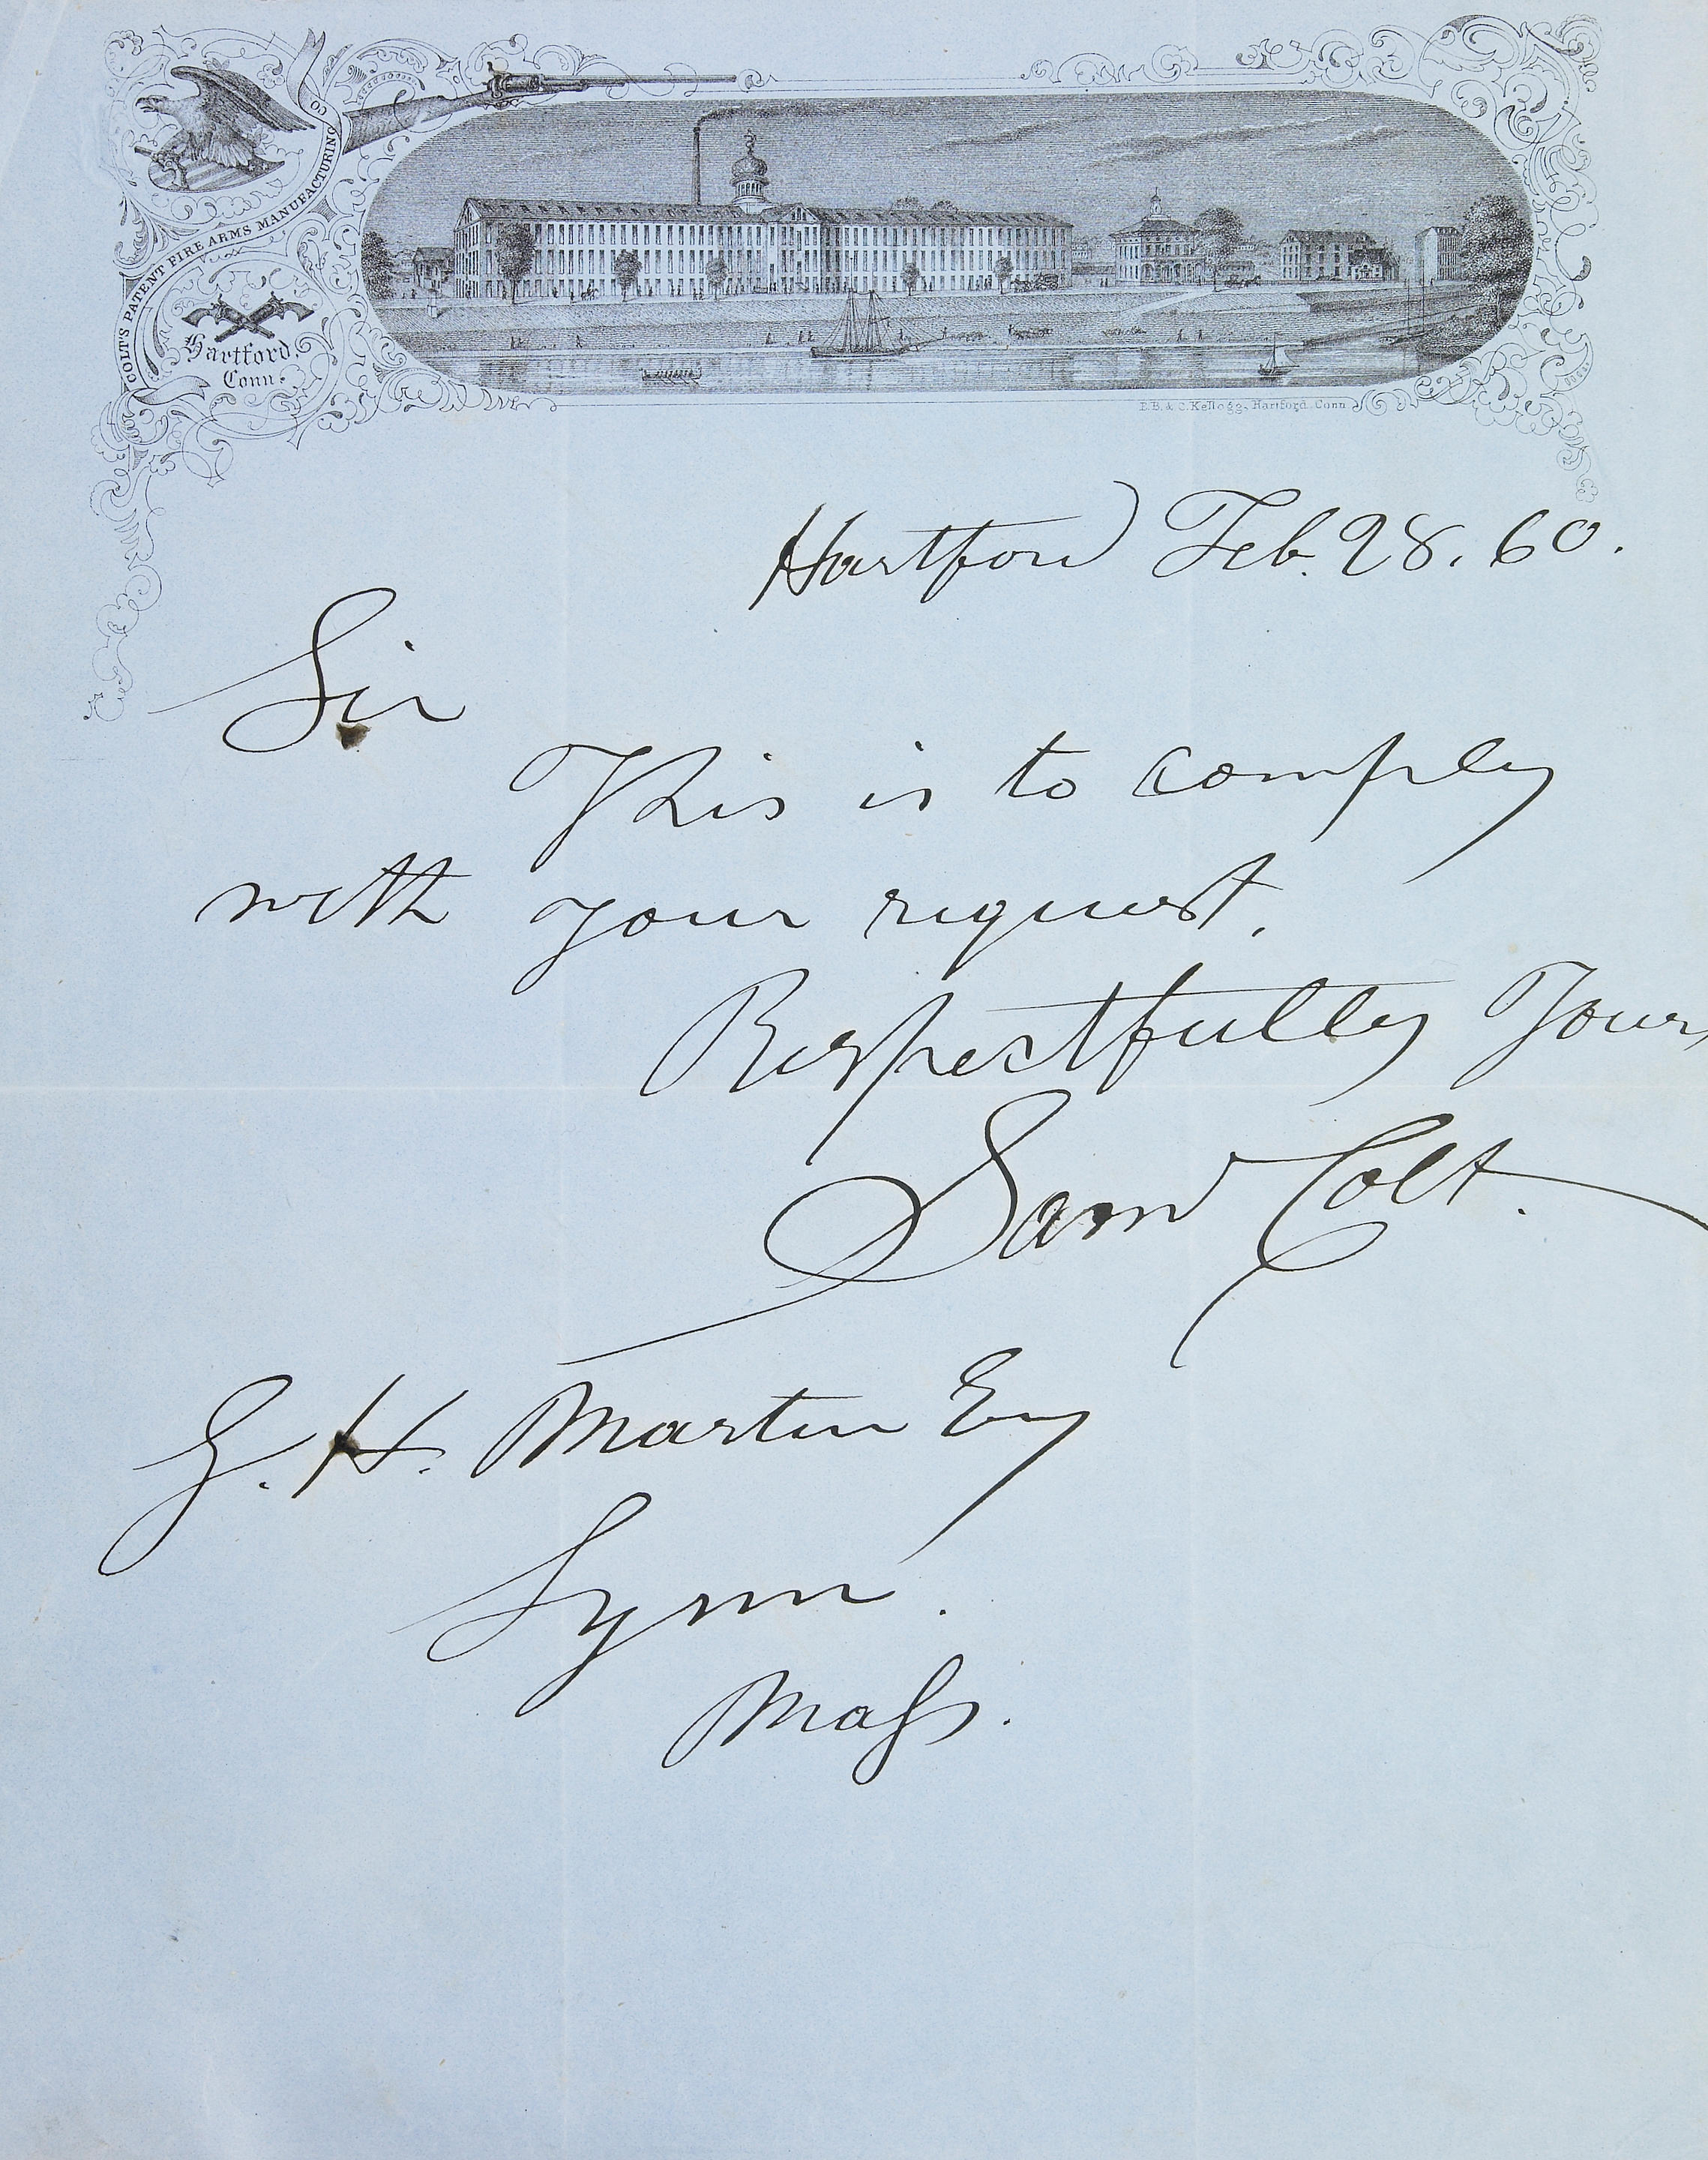 COLT'S PATENT FIRE ARMS MANUFACTURING CO
Hartford,
Conn.
E.B. & C. Kellogg, Hartford, Conn
Hartford Feb. 28. 60.
Sir
This is to comply
with your request.
Respectfully Yours
Saml Colt.
G. H. Martin Esq
Lynn.
Mass.